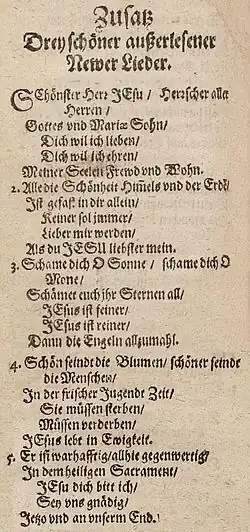 Zusatz
Dreyschöner außerlesener
Newer Lieder.
SChönster Herr JEsu / Herrscher aller
Herren /
Gottes vnd Mariæ Sohn /
Dich wil ich lieben /
Dich wil ich ehren /
Meiner Seelen Frewd vnd Wohn.
2. Alle die Schönheit Himels vnd der Erdē /
Ist gefast in dir allein /
Keiner sol immer /
Lieber mir werden /
Als du JESU liebster mein.
3. Schame dich O Sonne / schame dich O
Mone /
Schämet euch jhr Sternen all /
JEsus ist feiner /
JEsus ist reiner /
Dann die Engeln allzumahl.
4. Schön seindt die Blumen / schöner seindt
die Menschen /
In der frischer Jugendt Zeit /
Sie müssen sterben /
Müssen verderben /
JEsus lebt in Ewigkeit.
5. Er ist warhafftig / allhie gegenwertig /
In dem heiligen Sacrament /
JEsu dich bitt ich /
Sey vns gnädig /
Jetzo vnd an vnserm End.